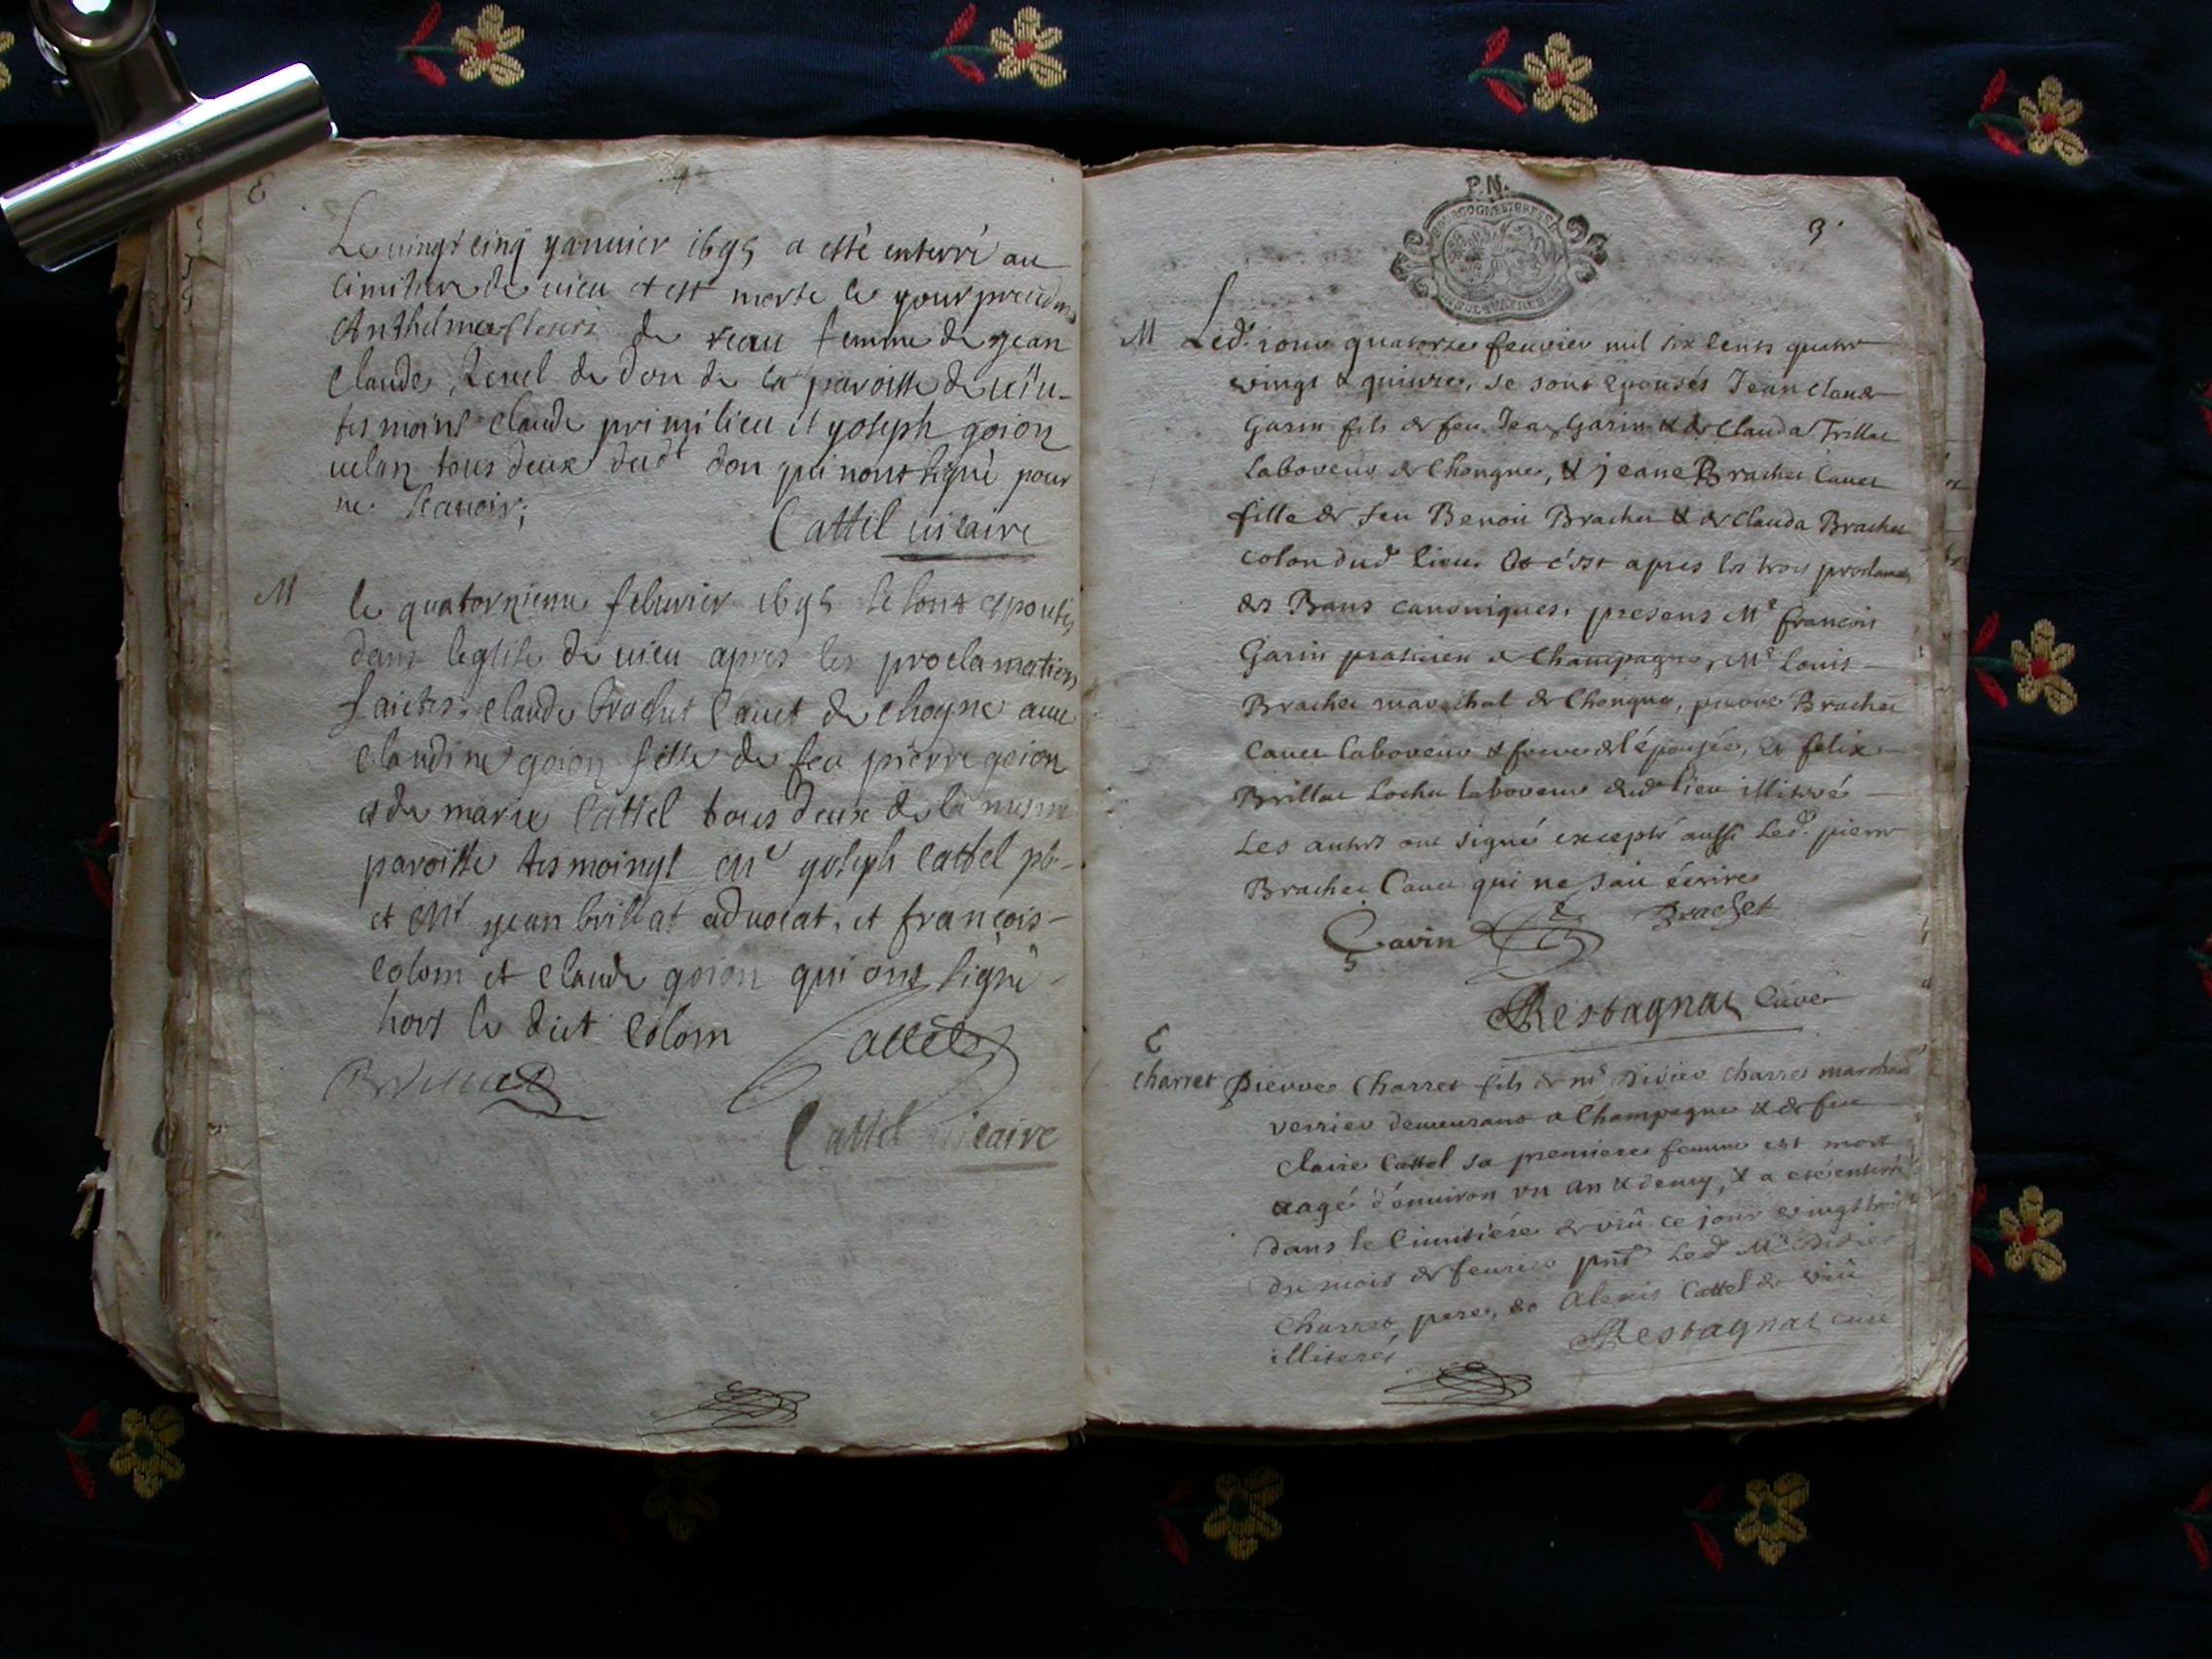 E
Le vingt cinq yanvier 1695 a esté enterré au
cimitiere de vieu et est morte le your precedent
Anthelme de femme de yean
claude de don de la paroisse de vieu
tesmoins claude primilieu et yoseph goion
tous deux dudt don qui nont signé pour
ne scavoir;
Cattel vicaire
M
le quatorzieme febvrier 1695 se sont epousés
dans leglise de vieu apres les proclamations
faictes, claude brachet cauet de chogne avec
claudine goion fille de feu pierre goion
et de marie Cattel tous deux de la mesme
paroisse tesmoings Mre yoseph Cattel pb-
et Mr yean brillat advocat, et françois-
Colom et claude goion qui ont signé
hors le dict Colom
Cattel
Cattel vicaire
P.N.
3
M Led. jour quatorze feuvrier mil six cents quatre
vingt & quinze, se sont epousés Jean Claude
Garin fils de feu Jean Garin & de Clauda
laboureur de Chongne, & jeane Brachet Cauet
fille de feu Benoit Brachet & de Clauda Brachet
colon dud lieu & c'est apres les trois proclamat
des Bans canoniques, presens Me françois
Garin praticien de Champagne, Me Louis
Brachet mareschal de Chongne, pierre Brachet
Cauet laboureur & frere de l'épousée, & felix
Brillat Lochu laboureur dud lieu illitteré
Les autres ont signé excepté aussi Led. pierre
Brachet Cauet qui ne sait écrire
Garin Brachet
Restagnat Curé
E
Charret Pierre Charret fils de mr Didier Charret marchand
verrier demeurant a Champagne & de feu
Claire Cattel sa premiere femme est mort
aagé d'environ un an & demy, & a eté enterré
dans le Cimitiére de viû ce jour vingt trois
du mois de feuvrier pnt Led Mr Didier
Charret pere, & Alexis Cattel de viû
illiterés Restagnat curé